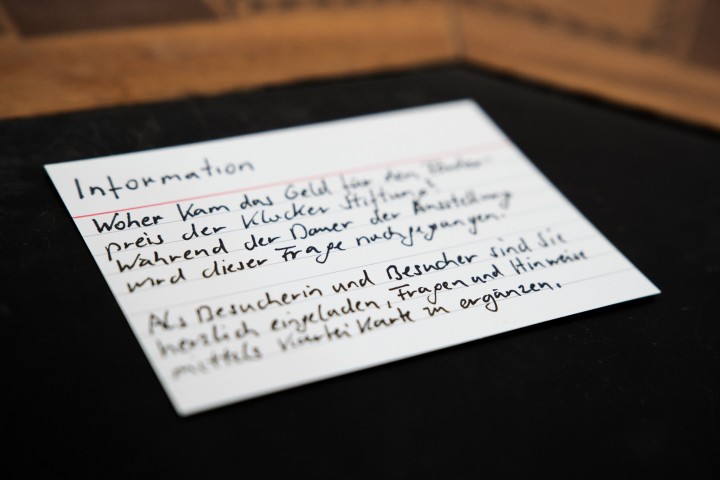 Information
Woher kam das Geld für den
preis der Klocker Stiftung?
Während der Dauer der Ausstellung
wird dieser Frage nachgegangen.
Als Besucherin und Besucher sind Sie
herzlich eingeladen, Fragen und Hinweise
mittels Karteikarte zu ergänzen.